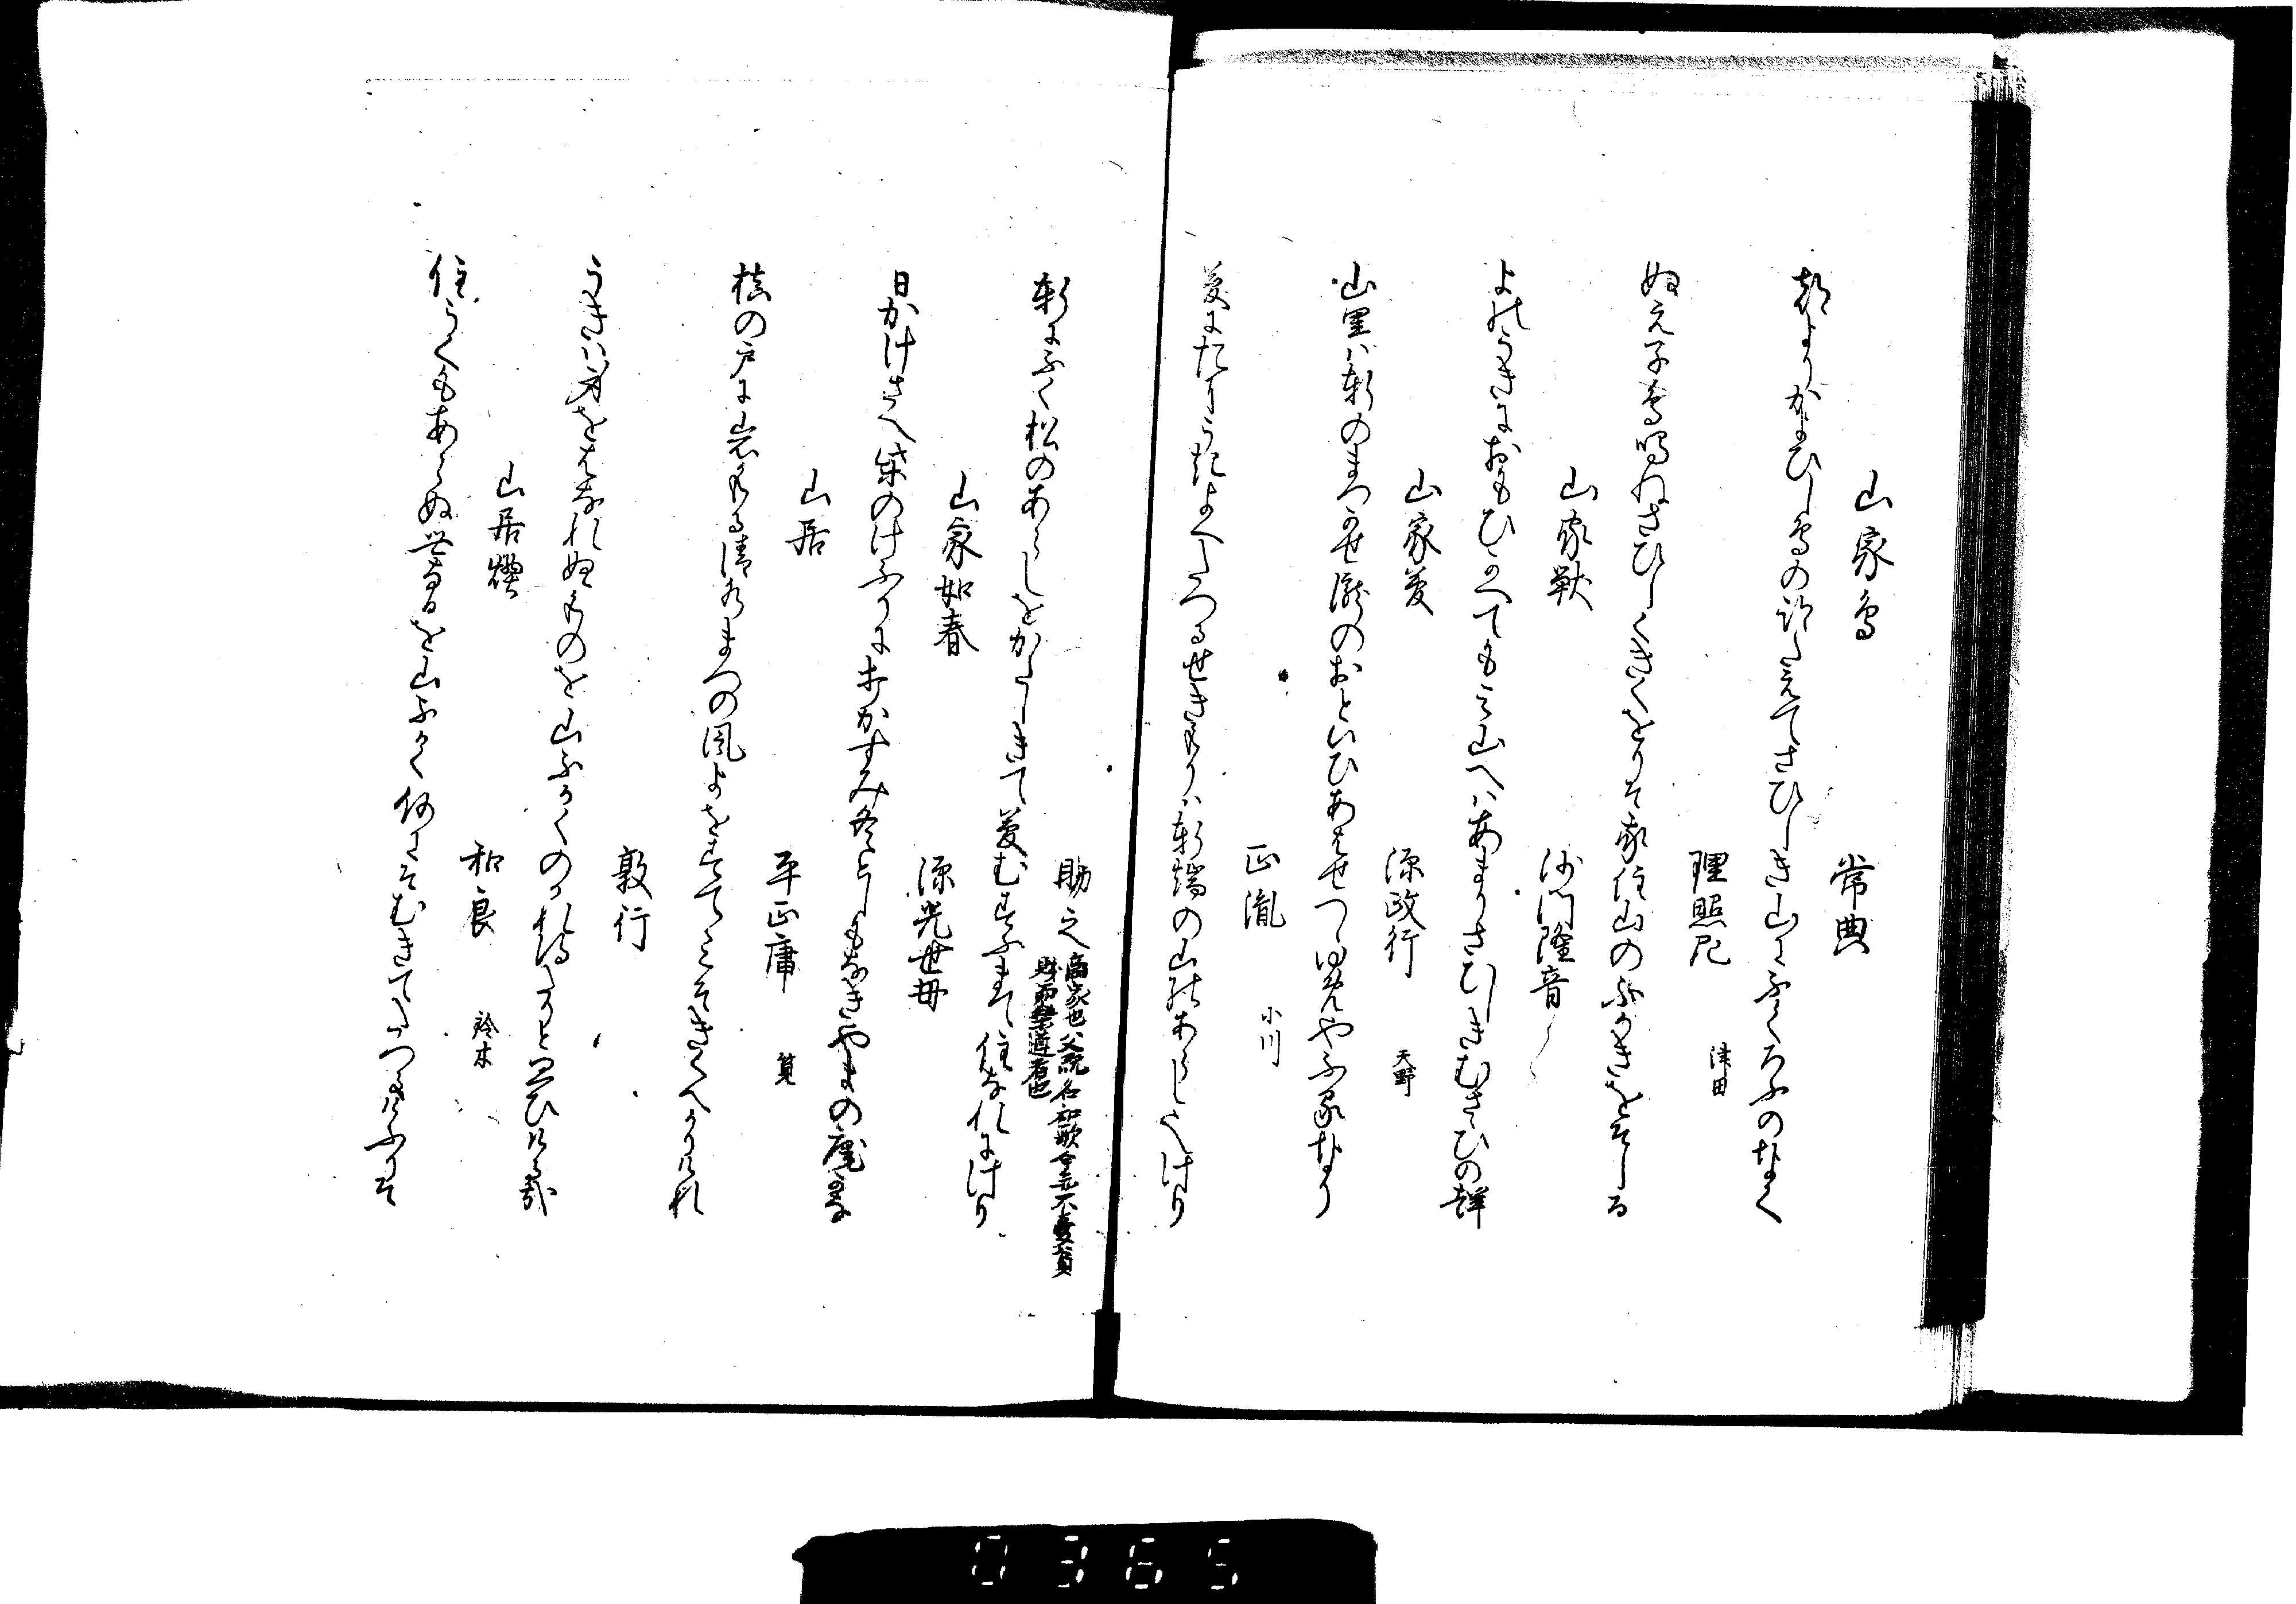 山家鳥　常典
都よりかよひし鳥の跡たえてさひしき山にふくろふのなく
理照尼　津田
ぬえ子鳥鳴ねさひしくきくをりそ家住山のふかきをそしる
山家獣　沙門隆音
よのうきにおもひかへてもみ山へはあまりさひしきむさゝひの声
山家夢　源政行　天野
山里は軒のまつかせ瀧のおといひあはせつゝゆめやふるなり
正胤　小川
夢にたにうたよへたつるせきもりは軒端の山のあらしなりけり
助之　商家也父既名和歌今亦不憂貧
賎而学道者也
軒にふく松のあらしをかたしきて夢むすふまて住なれにけり
山家如春　源光世母
日かけさへ柴のけふりに打かすみ冬としもなきやまの庵かな
山居　平正庸　筧
槙の戸に岩もる清水まつの風よをすてゝこそきくへかりけれ
敦行
うきは身をはなれぬものを山ふかくのかれ得たりと思ひける哉
山居燈　和良　鈴木
住うくもあらぬ世なるを山ふかく何にそむきて